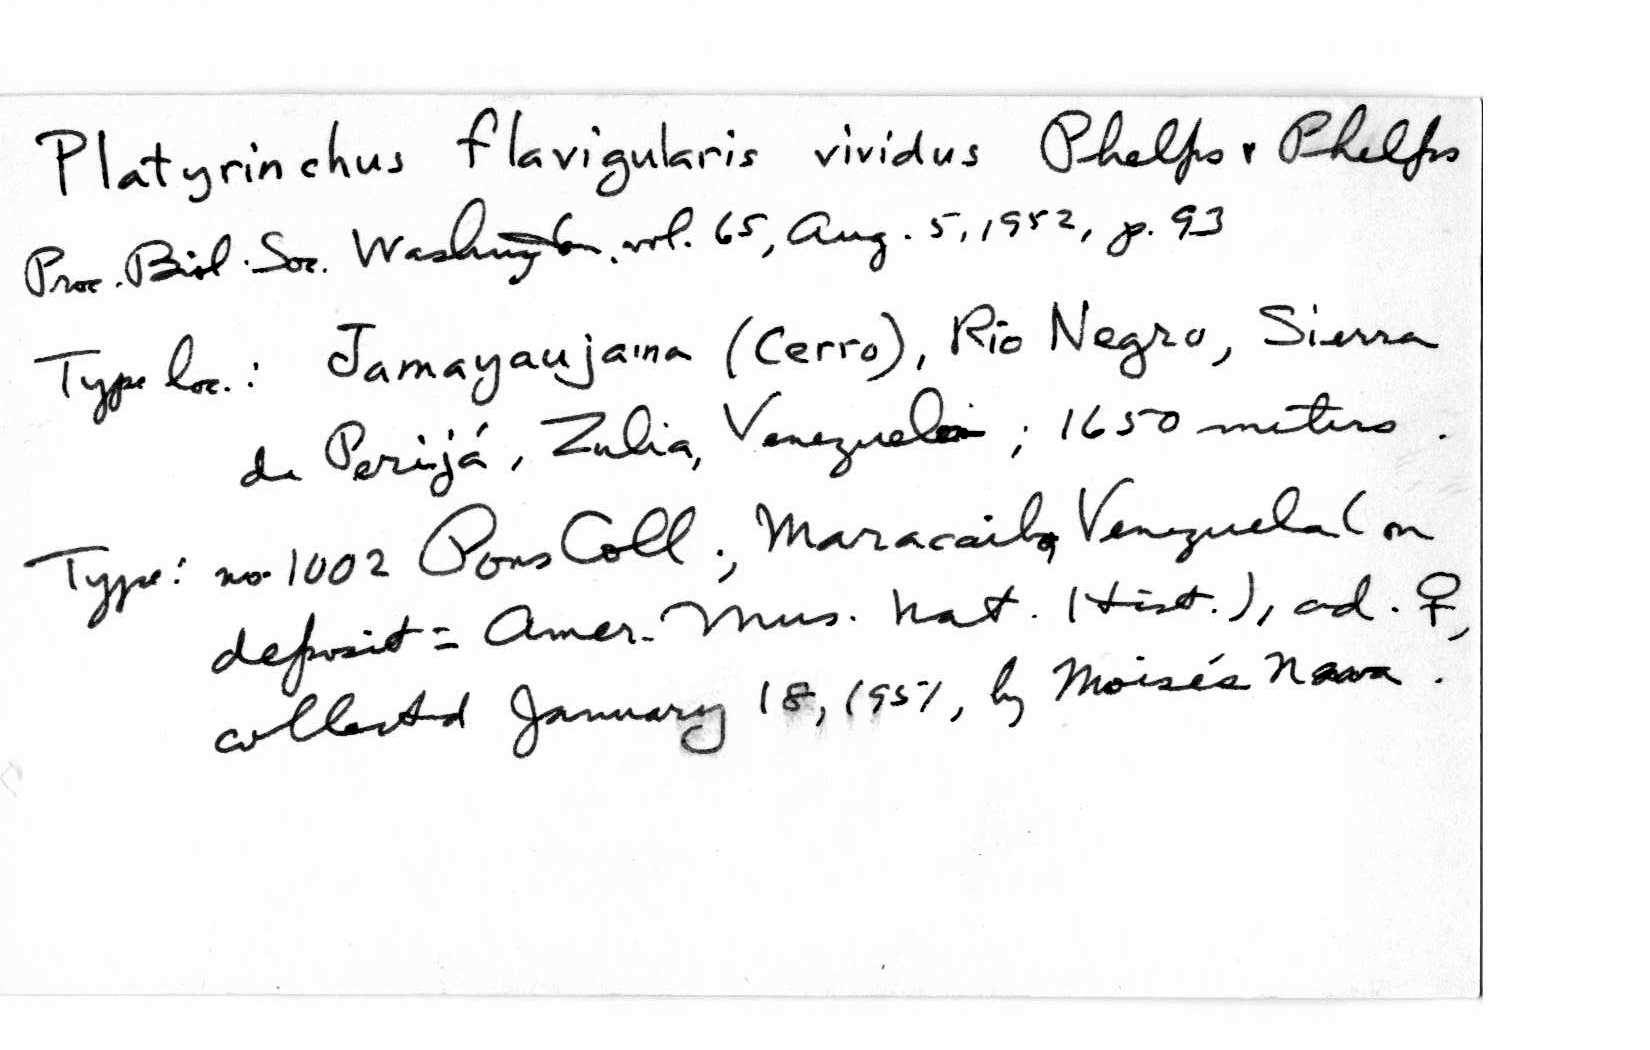 Platyrinchus flavigularis vividus Phelps & Phelps
Proc. Biol. Soc. Washington, vol. 65, Aug. 5, 1952, p. 93
Type loc.: Jamayaujaina (Cerro), Río Negro, Sierra
de Perijá, Zulia, Venezuela; 1650 meters.
Type: no. 1002 Pons Coll.; Maracaibo, Venezuela (on
deposit = Amer. Mus. Nat. Hist.), ad. ♀,
collected January 18, 1951, by Moisés Nava.